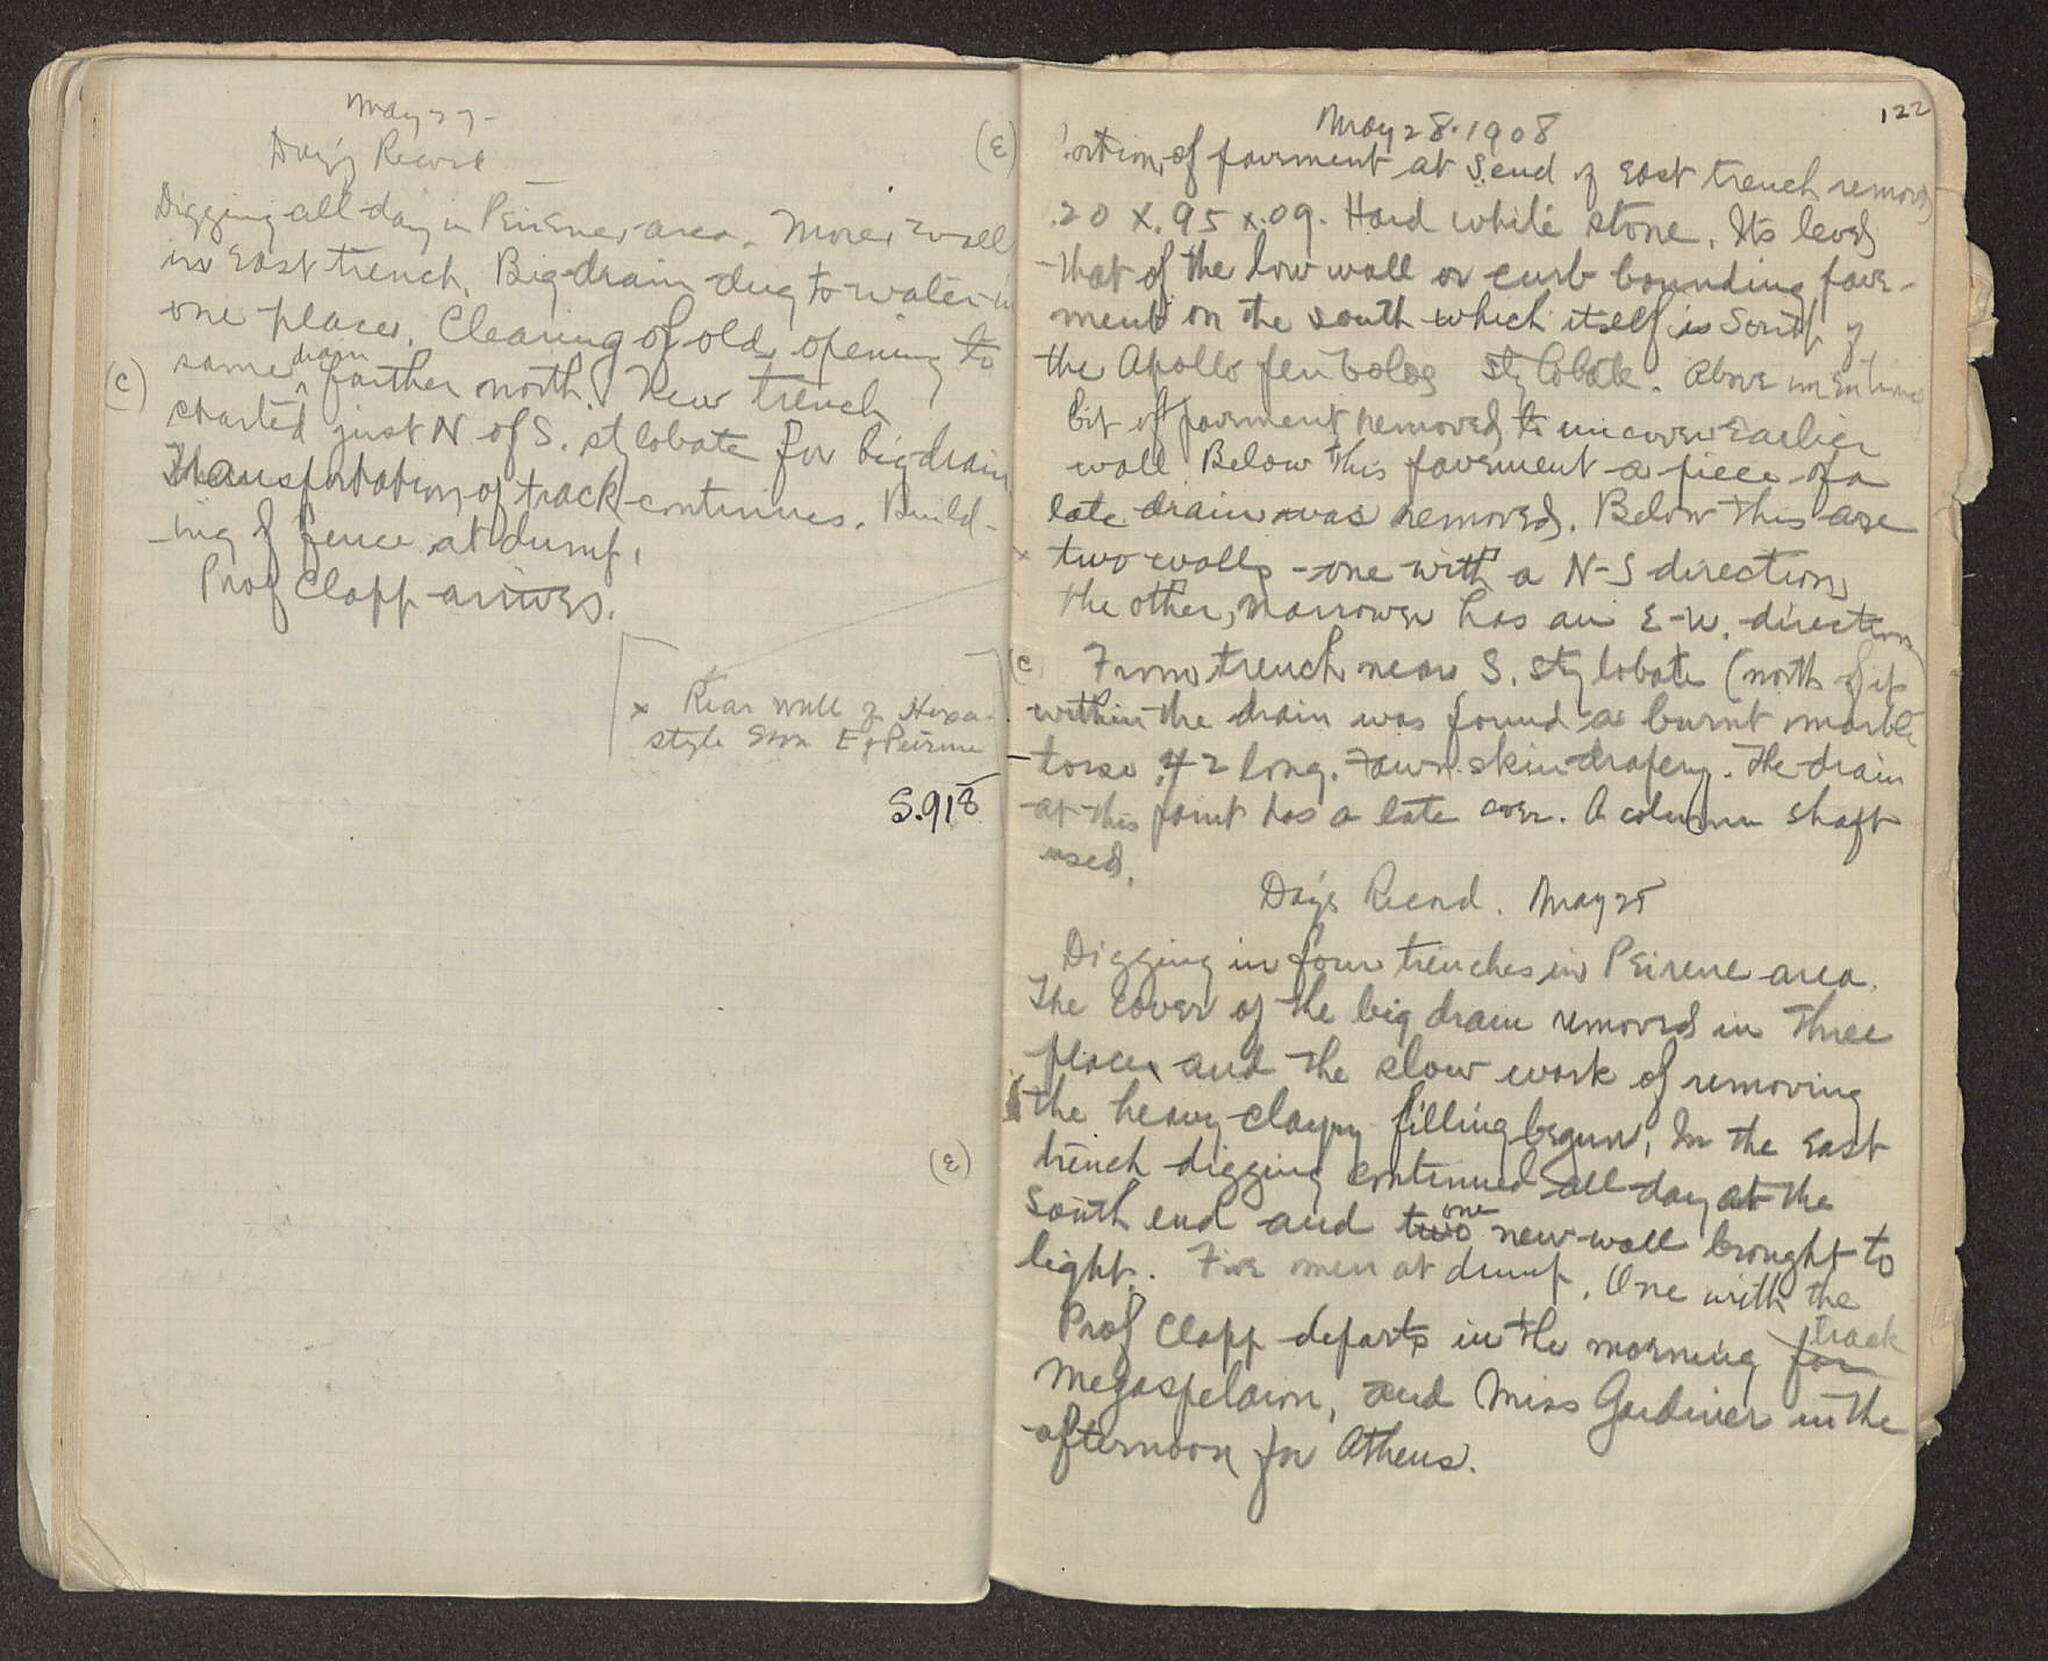 May 27-
Day's Record
Digging all day in Peirene area. More wall
in East trench. Big drain dug to water in
one place. Clearing of old opening to
same drain farther north. New trench
(C)
started just N of S. stylobate for big drain
Transportation of track continues. Build-
ing of fence at dump.
Prof Clapp arrives.
× Rear wall of Hexa-
style Stoa E of Peirene
S.918
122
May 28. 1908
(E)
Portion of pavement at S. end of East trench removed
.20 X .95 x .09. Hard white stone. Its level
that of the low wall or curb bounding pave-
ment on the south which itself is South of
the Apollo peribolos stylobate. Above mentioned
bit of pavement removed to uncover Earlier
wall. Below this pavement a piece of a
late drain was removed. Below this are
× two walls - one with a N-S direction
the other, narrower has an E-W. direction
(C) From trench near S. stylobate (north of it)
within the drain was found a burnt marble
torso .42 long. Fawn skin drapery. The drain
at this point has a late cover. A column shaft
used.
Day's Record. May 28
Digging in four trenches in Peirene area.
The cover of the big drain removed in three
places and the slow work of removing
the heavy clayey filling begun. In the East
(E)
trench digging continued all day at the
South end and two one new wall brought to
light. Five men at dump. One with the
track
Prof Clapp departs in the morning for
Megaspelaion, and Miss Gardiner in the
afternoon for Athens.